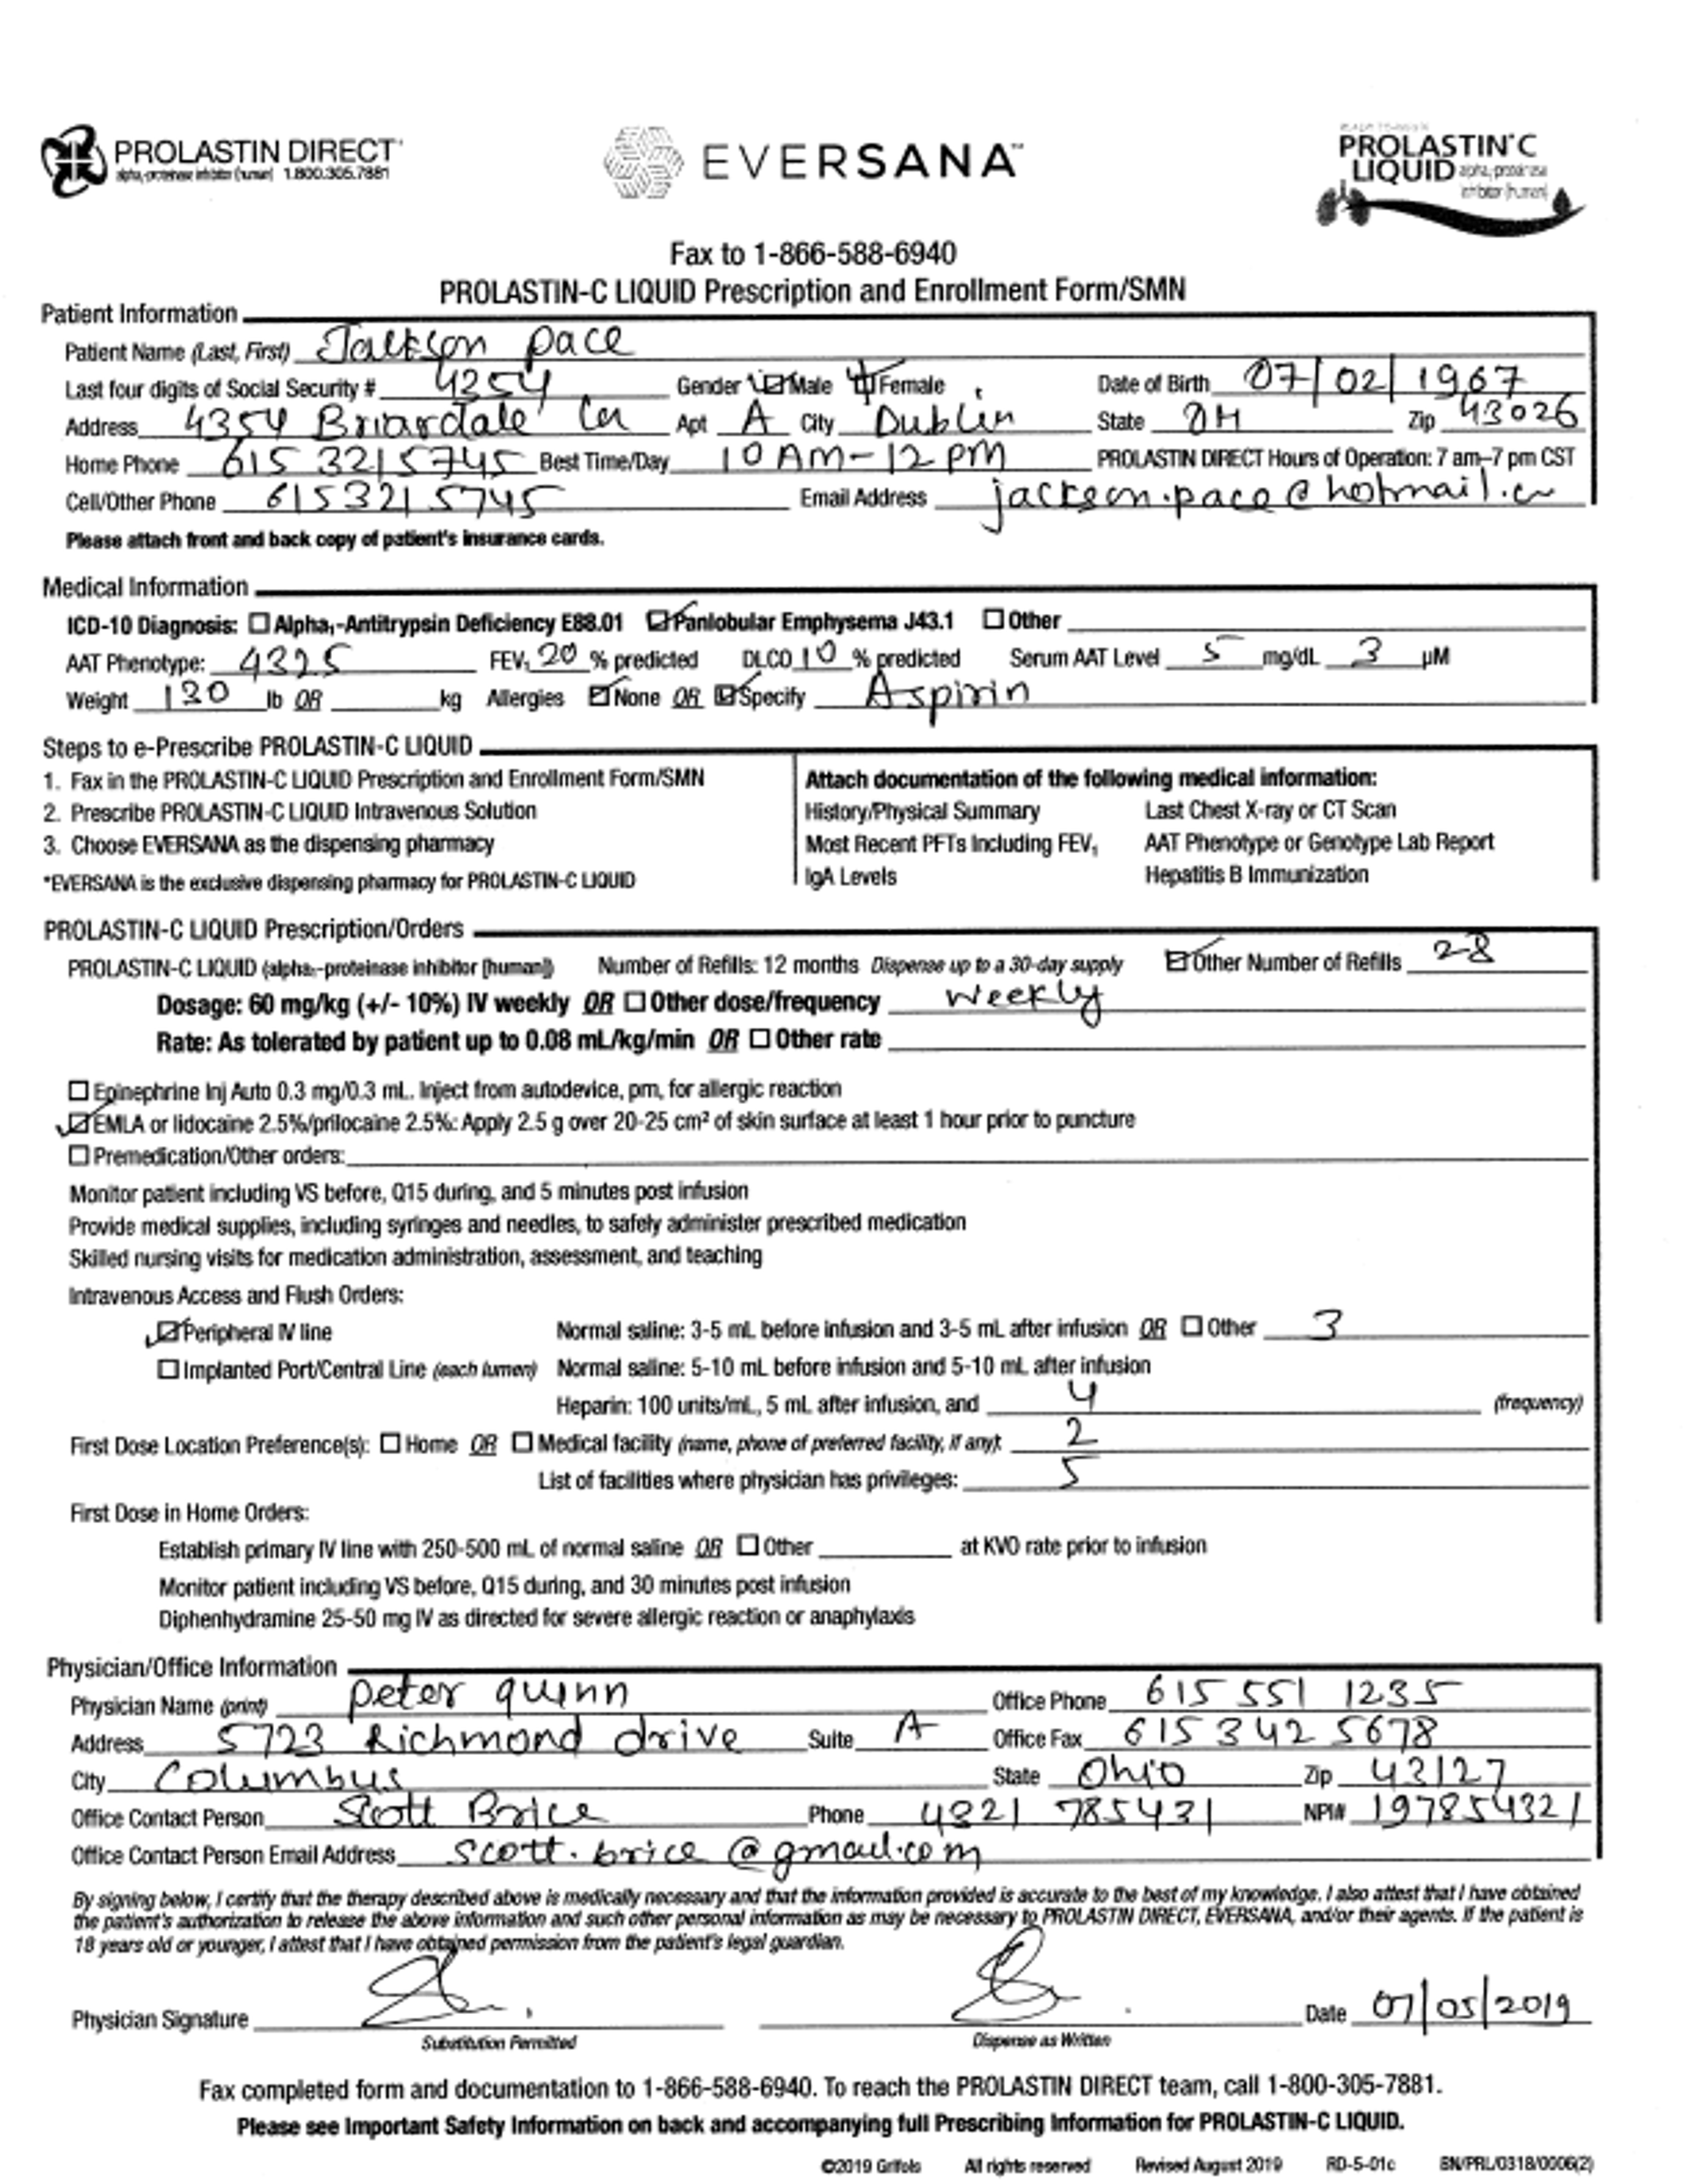 PROLASTIN DIRECT
alpha₁-proteinase inhibitor (human) 1.800.305.7881
EVERSANA™
PROLASTIN®C
LIQUID alpha₁-proteinase
inhibitor (human)
Fax to 1-866-588-6940
PROLASTIN-C LIQUID Prescription and Enrollment Form/SMN
Patient Information
Patient Name (Last, First) Jackson pace
Last four digits of Social Security # 4254 Gender Male Female Date of Birth 07/02/1967
Address 4354 Briardale Ln Apt A City Dublin State OH Zip 43026
Home Phone 615 321 5745 Best Time/Day 10 AM-12 PM PROLASTIN DIRECT Hours of Operation: 7 am–7 pm CST
Cell/Other Phone 615321 5745 Email Address jackson.pace@hotmail.
Please attach front and back copy of patient's insurance cards.
Medical Information
ICD-10 Diagnosis: Alpha₁-Antitrypsin Deficiency E88.01 Panlobular Emphysema J43.1 Other
AAT Phenotype: 4325 FEV₁ 20 % predicted DLCO 10 % predicted Serum AAT Level 5 mg/dL 3 µM
Weight 130 lb OR kg Allergies None OR Specify Aspirin
Steps to e-Prescribe PROLASTIN-C LIQUID
1. Fax in the PROLASTIN-C LIQUID Prescription and Enrollment Form/SMN
2. Prescribe PROLASTIN-C LIQUID Intravenous Solution
3. Choose EVERSANA as the dispensing pharmacy
*EVERSANA is the exclusive dispensing pharmacy for PROLASTIN-C LIQUID
Attach documentation of the following medical information:
History/Physical Summary Last Chest X-ray or CT Scan
Most Recent PFTs Including FEV₁ AAT Phenotype or Genotype Lab Report
IgA Levels Hepatitis B Immunization
PROLASTIN-C LIQUID Prescription/Orders
PROLASTIN-C LIQUID (alpha₁-proteinase inhibitor [human]) Number of Refills: 12 months Dispense up to a 30-day supply Other Number of Refills 28
Dosage: 60 mg/kg (+/- 10%) IV weekly OR Other dose/frequency weekly
Rate: As tolerated by patient up to 0.08 mL/kg/min OR Other rate
Epinephrine Inj Auto 0.3 mg/0.3 mL. Inject from autodevice, prn, for allergic reaction
EMLA or lidocaine 2.5%/prilocaine 2.5%: Apply 2.5 g over 20-25 cm² of skin surface at least 1 hour prior to puncture
Premedication/Other orders:
Monitor patient including VS before, Q15 during, and 5 minutes post infusion
Provide medical supplies, including syringes and needles, to safely administer prescribed medication
Skilled nursing visits for medication administration, assessment, and teaching
Intravenous Access and Flush Orders:
Peripheral IV line Normal saline: 3-5 mL before infusion and 3-5 mL after infusion OR Other 3
Implanted Port/Central Line (each lumen) Normal saline: 5-10 mL before infusion and 5-10 mL after infusion
Heparin: 100 units/mL, 5 mL after infusion, and 4 (frequency)
First Dose Location Preference(s): Home OR Medical facility (name, phone of preferred facility, if any): 2
List of facilities where physician has privileges: 5
First Dose in Home Orders:
Establish primary IV line with 250-500 mL of normal saline OR Other at KVO rate prior to infusion
Monitor patient including VS before, Q15 during, and 30 minutes post infusion
Diphenhydramine 25-50 mg IV as directed for severe allergic reaction or anaphylaxis
Physician/Office Information
Physician Name (print) peter quinn Office Phone 615 551 1235
Address 5723 Richmond drive Suite A Office Fax 615 342 5678
City Columbus State Ohio Zip 43127
Office Contact Person Scott Brice Phone 4321 785431 NPI# 197854321
Office Contact Person Email Address scott.brice@gmail.com
By signing below, I certify that the therapy described above is medically necessary and that the information provided is accurate to the best of my knowledge. I also attest that I have obtained
the patient's authorization to release the above information and such other personal information as may be necessary to PROLASTIN DIRECT, EVERSANA, and/or their agents. If the patient is
18 years old or younger, I attest that I have obtained permission from the patient's legal guardian.
Physician Signature Date 07/05/2019
Substitution Permitted Dispense as Written
Fax completed form and documentation to 1-866-588-6940. To reach the PROLASTIN DIRECT team, call 1-800-305-7881.
Please see Important Safety Information on back and accompanying full Prescribing Information for PROLASTIN-C LIQUID.
©2019 Grifols All rights reserved Revised August 2019 RD-5-01c BN/PRL/0318/0006(2)